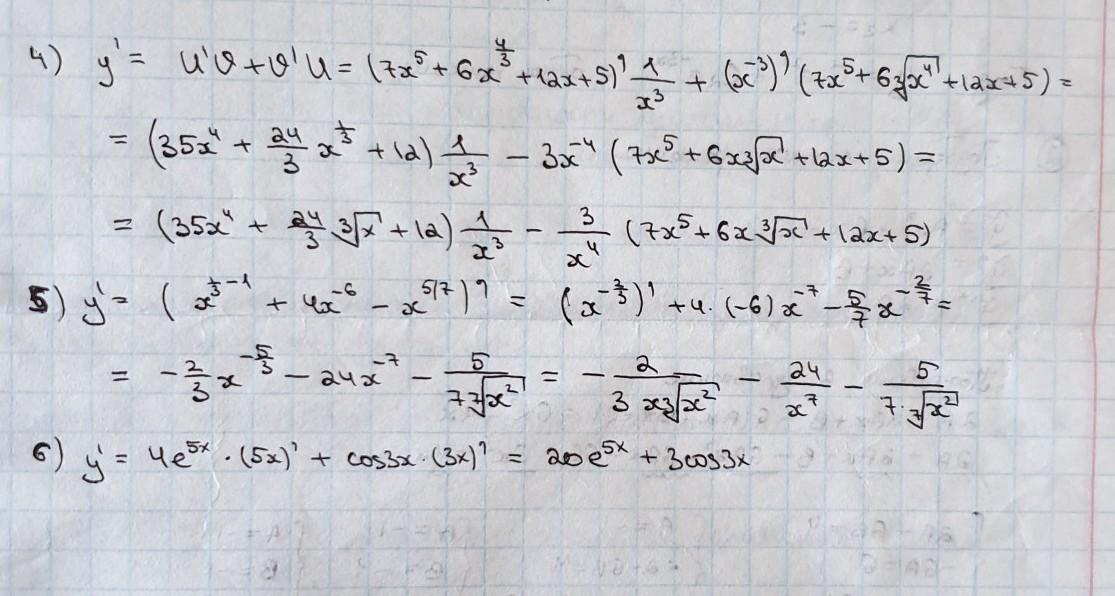 4) y' = u'v + v'u = (7x⁵ + 6x^{4/3} + 12x + 5)' \frac{1}{x³} + (x⁻³)' (7x⁵ + 6∛x⁴ + 12x + 5) =
= (35x⁴ + \frac{24}{3} x^{1/3} + 12) \frac{1}{x³} - 3x⁻⁴ (7x⁵ + 6x∛x + 12x + 5) =
= (35x⁴ + \frac{24}{3} ∛x + 12) \frac{1}{x³} - \frac{3}{x⁴} (7x⁵ + 6x ∛x + 12x + 5)
5) y' = (x^{1/3 - 1} + 4x⁻⁶ - x^{5/7})' = (x^{-2/3})' + 4·(-6)x⁻⁷ - \frac{5}{7} x^{-2/7} =
= -\frac{2}{3} x^{-5/3} - 24x⁻⁷ - \frac{5}{7\sqrt[7]{x²}} = -\frac{2}{3x∛x²} - \frac{24}{x⁷} - \frac{5}{7·\sqrt[7]{x²}}
6) y' = 4e^{5x} · (5x)' + cos3x · (3x)' = 20e^{5x} + 3cos3x